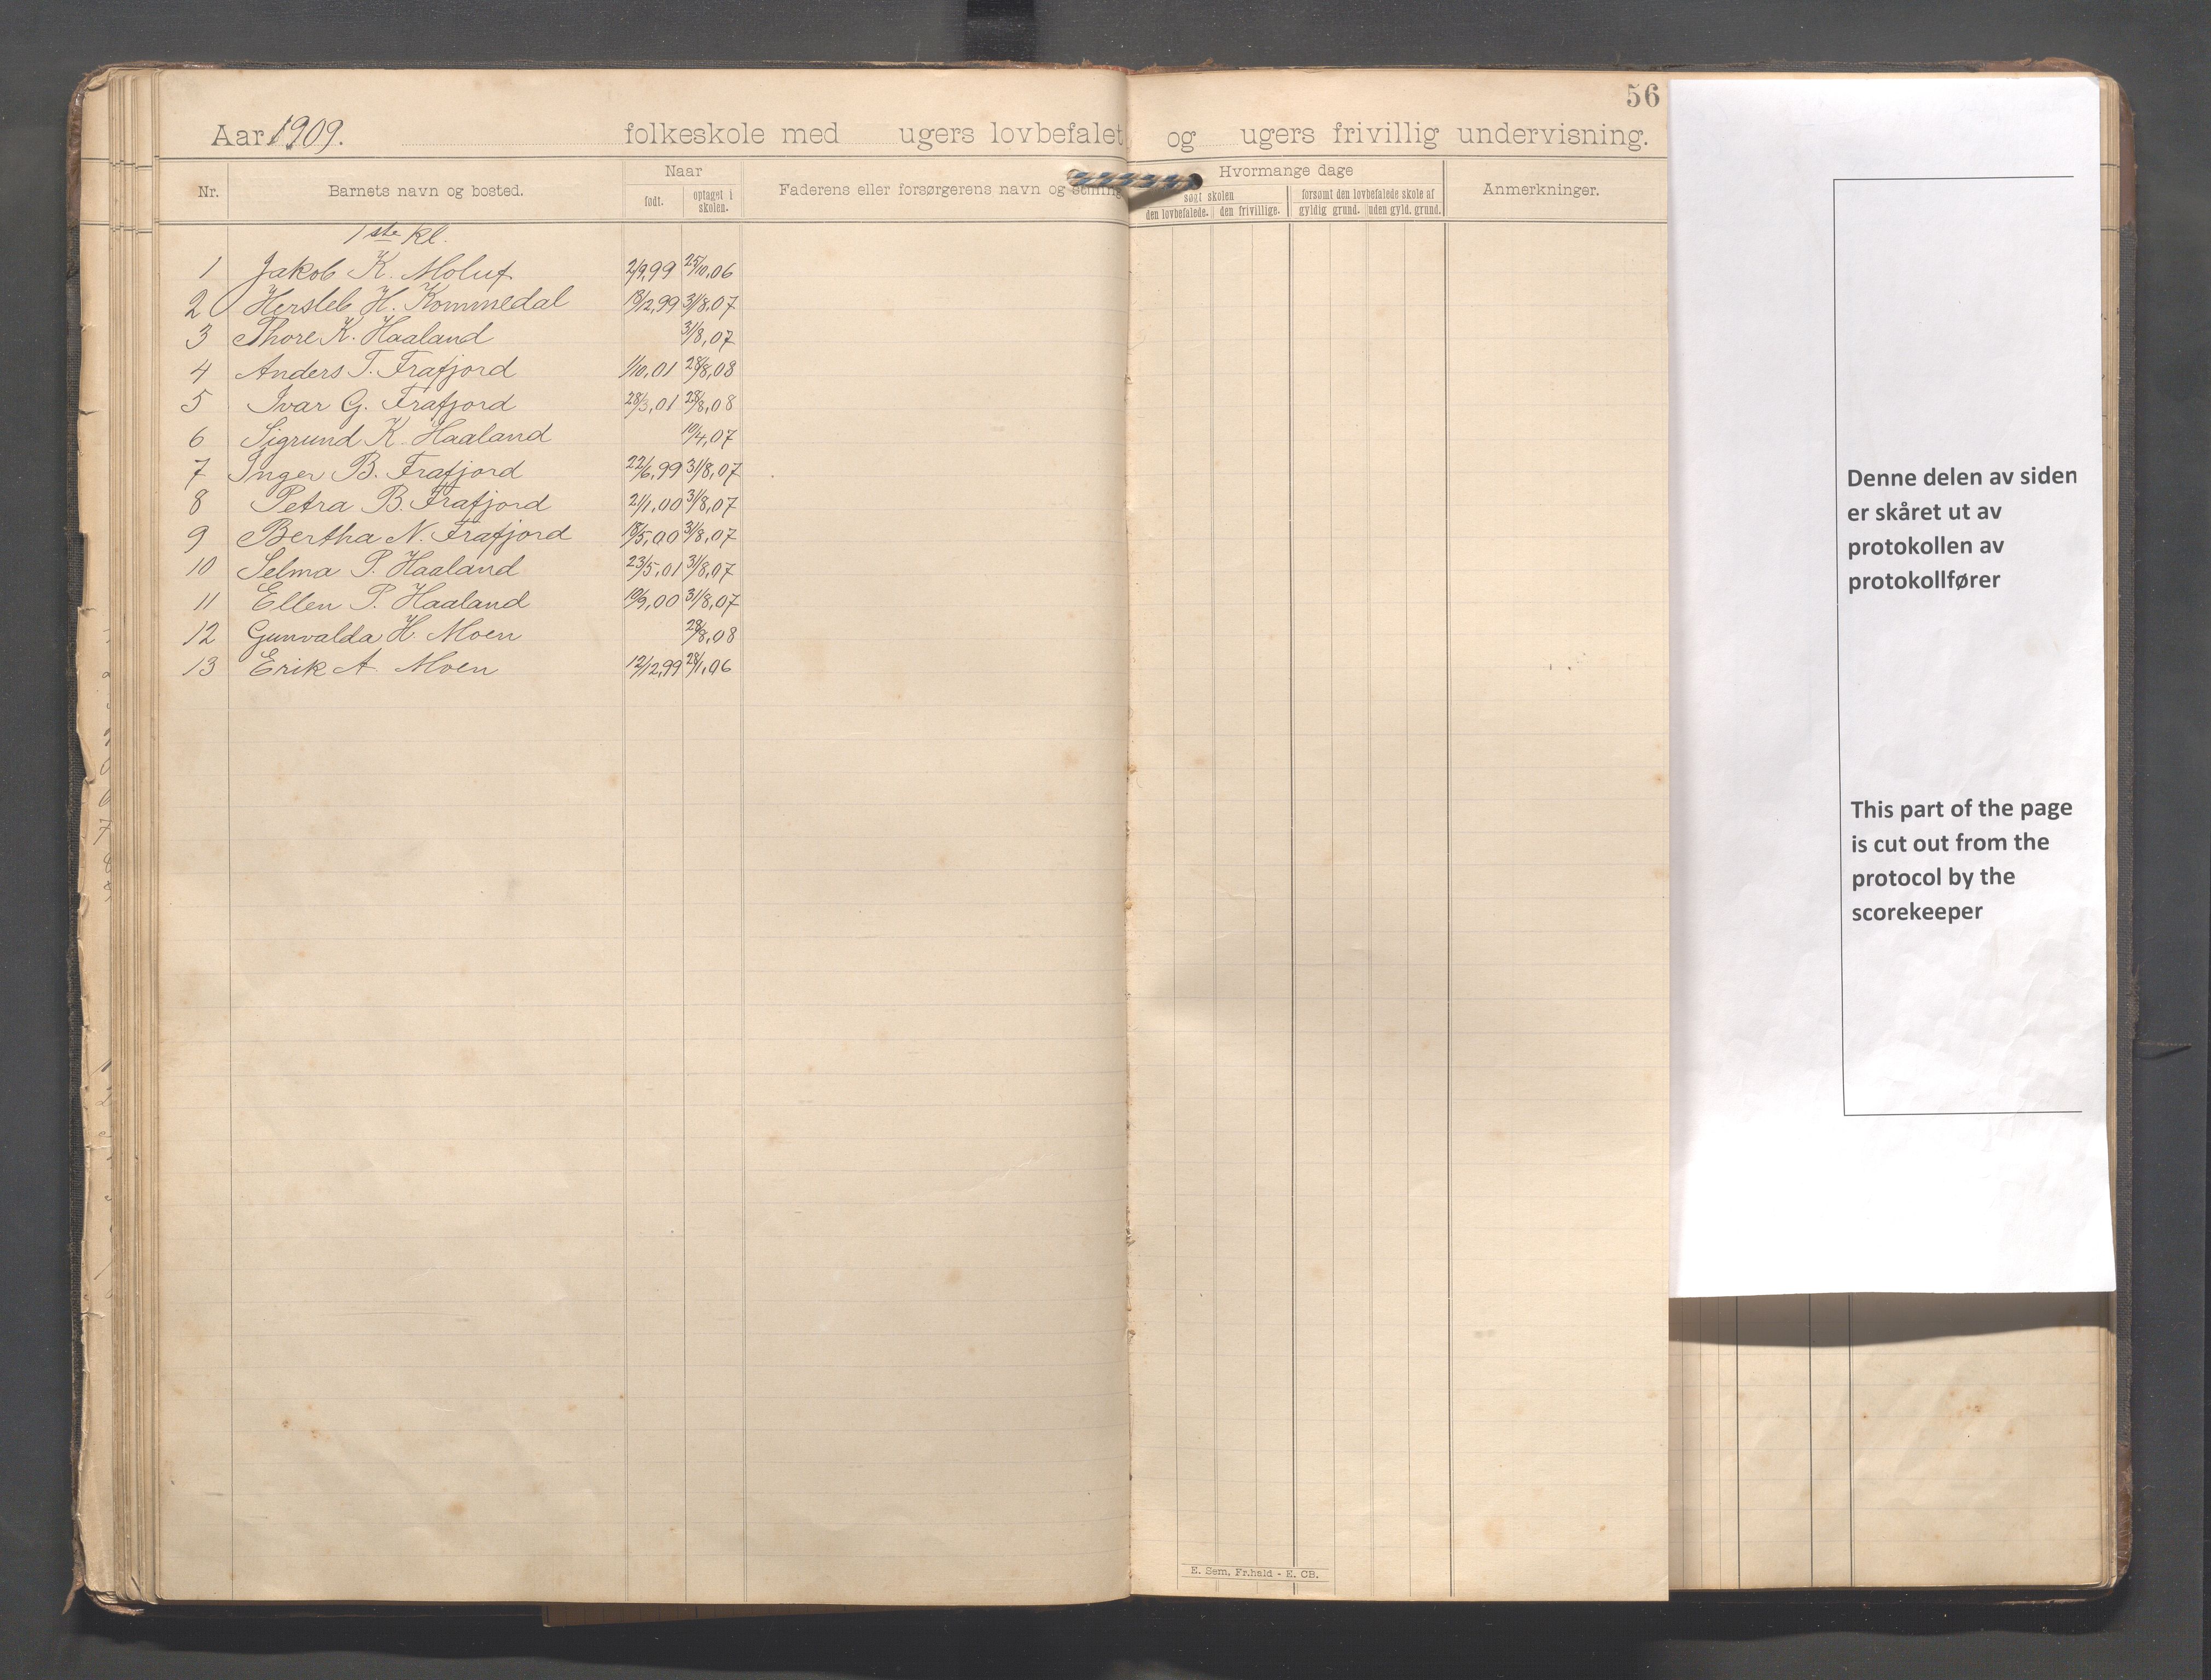 56
Aar 1909. folkeskole med ugers lovbefalet og ugers frivillig undervisning.
Nr. Barnets navn og bosted. Naar født. optaget i skolen. Faderens eller forsørgerens navn og stilling Hvormange dage søgt skolen den lovbefalede. den frivillige. forsømt den lovbefalede skole af gyldig grund. uden gyld. grund. Anmerkninger.
1ste kl.
1 Jakob K. Moluf 2/9,99 25/10,06
2 Hersleb H. Kommedal 18/2,99 31/8,07
3 Thore K. Haaland 31/8,07
4 Anders T. Frafjord 1/10,01 28/8,08
5 Ivar G. Frafjord 28/3,01 28/8,08
6 Sigrund K. Haaland 10/4,07
7 Inger B. Frafjord 22/6,99 31/8,07
8 Petra B. Frafjord 2/1,00 31/8,07
9 Bertha N. Frafjord 18/5,00 31/8,07
10 Selma P. Haaland 23/5,01 31/8,07
11 Ellen P. Haaland 10/9,00 31/8,07
12 Gunvalda H. Moen 28/8,08
13 Erik A. Moen 12/12,99 28/1,06
E. Sem, Fr.hald - E. CB.
Denne delen av siden
er skåret ut av
protokollen av
protokollfører
This part of the page
is cut out from the
protocol by the
scorekeeper